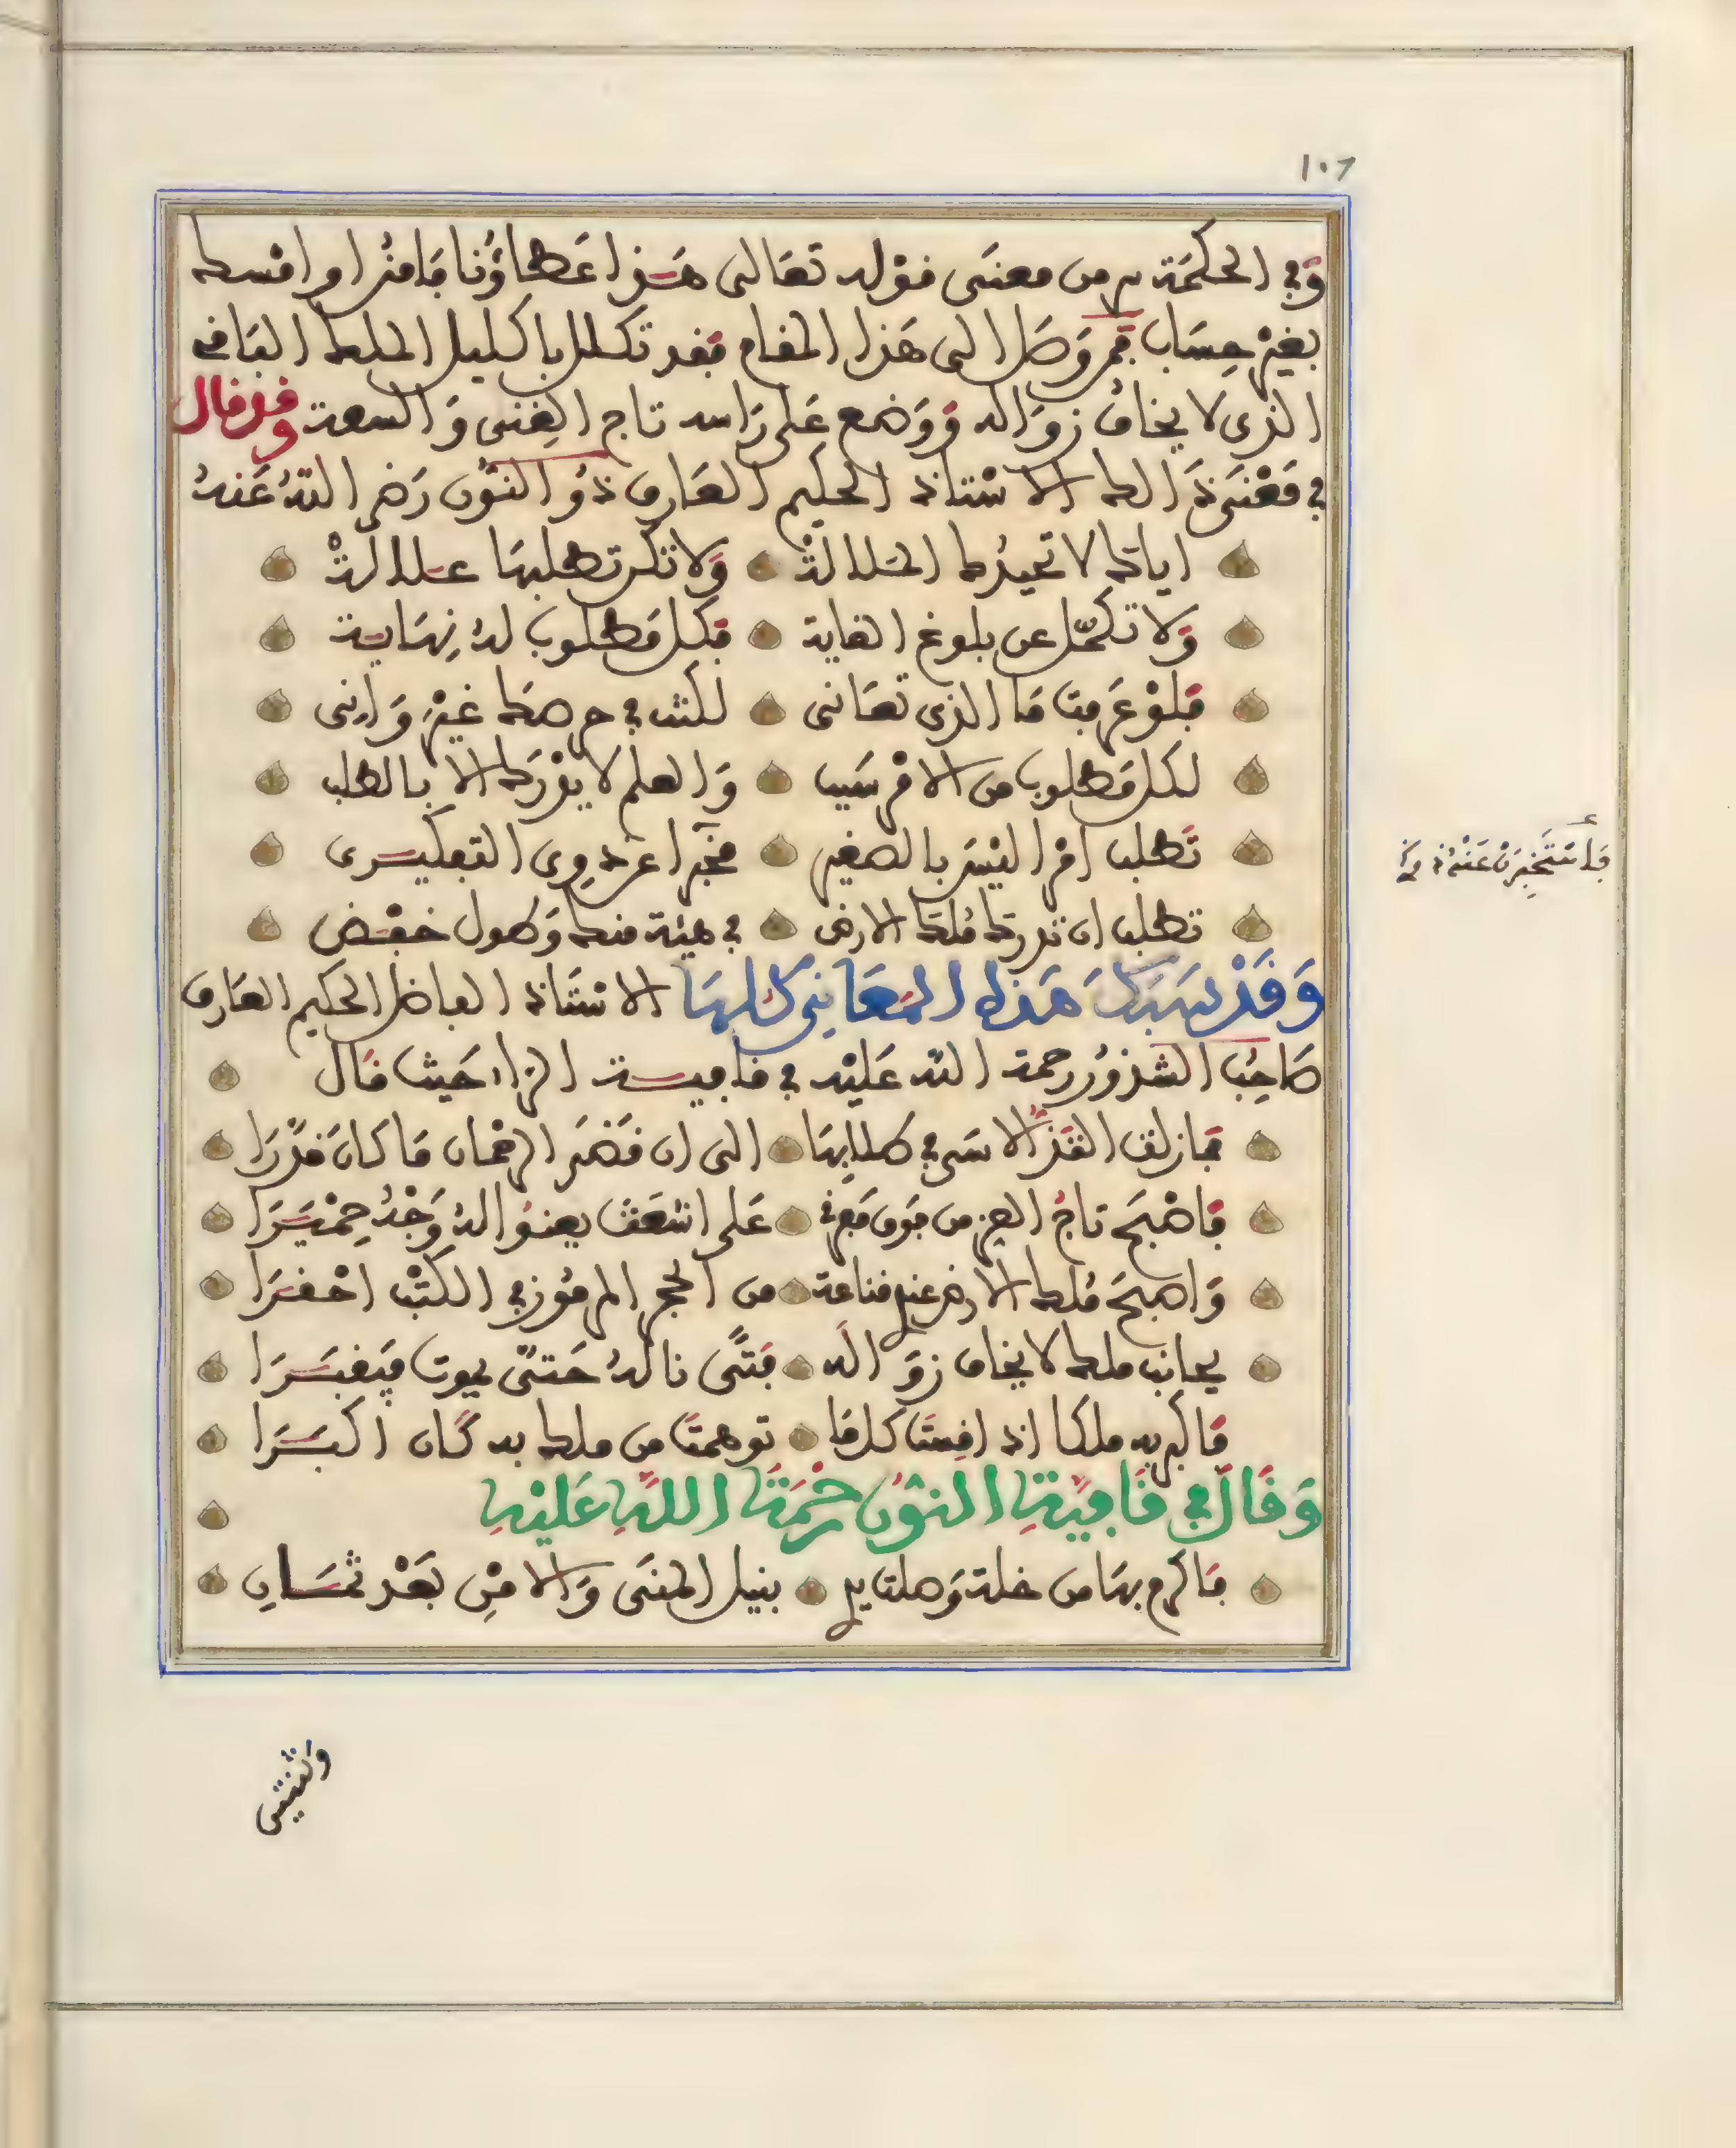 ١٠٦
وفي الحكمة سر من معنى قوله تعالى هذا عطاؤنا فامنن او امسك
بغير حساب فمن وصل الى هذا المقام فقد تكلل باكليل الملك الباقي
الذي لا يخاف زواله ووضع على راسه تاج الغنى والسعة وقد قال
في معنى ذالك الاستاذ الحكيم العارف ذو النون رضي الله عنه
اياك لا تحيدك الملالة ولا تكن تطلبها علالة
ولا تكمل عن بلوغ الغاية فكل مطلوب له نهاية
فلو عرفت ما الذي تعاني لكنت في حرصك غير واني
لكل مطلوب من الامر سبب والعلم لا يدرك الا بالطلب
تطلب امرا ليس بالصغير محبرا عند ذوي التفكير
تطلب ان تدرك ملك الارض في هيئة منك وطول خفض
فاستخبرن عنه ذوي
وقد سبك هذه المعاني كلها الاستاذ الفاضل الحكيم العارف
صاحب الشذور رحمة الله عليه في قافيـة الراء حيث قال
فما زلت القذ الاسى في طلابها الى ان قضى الرحمان ما كان قدرا
فاصبح تاج العز من فوق مفرق على اشعث يعنو له وجد حميرا
واصبح ملك الارض عند قناعة من الحجر المرموز في الكتب احقرا
يجانب ملك لا يخاف زواله فتى ناله حتى يموت فيقبرا
فاكبر به ملكا اذا قست كل ما توهمت من ملك به كان اكبرا
وقال في قافية النون رحمة الله عليه
فاكرم بها من خلة وصلت بنيل المنى والامن بعد شمسان
والغنيتى